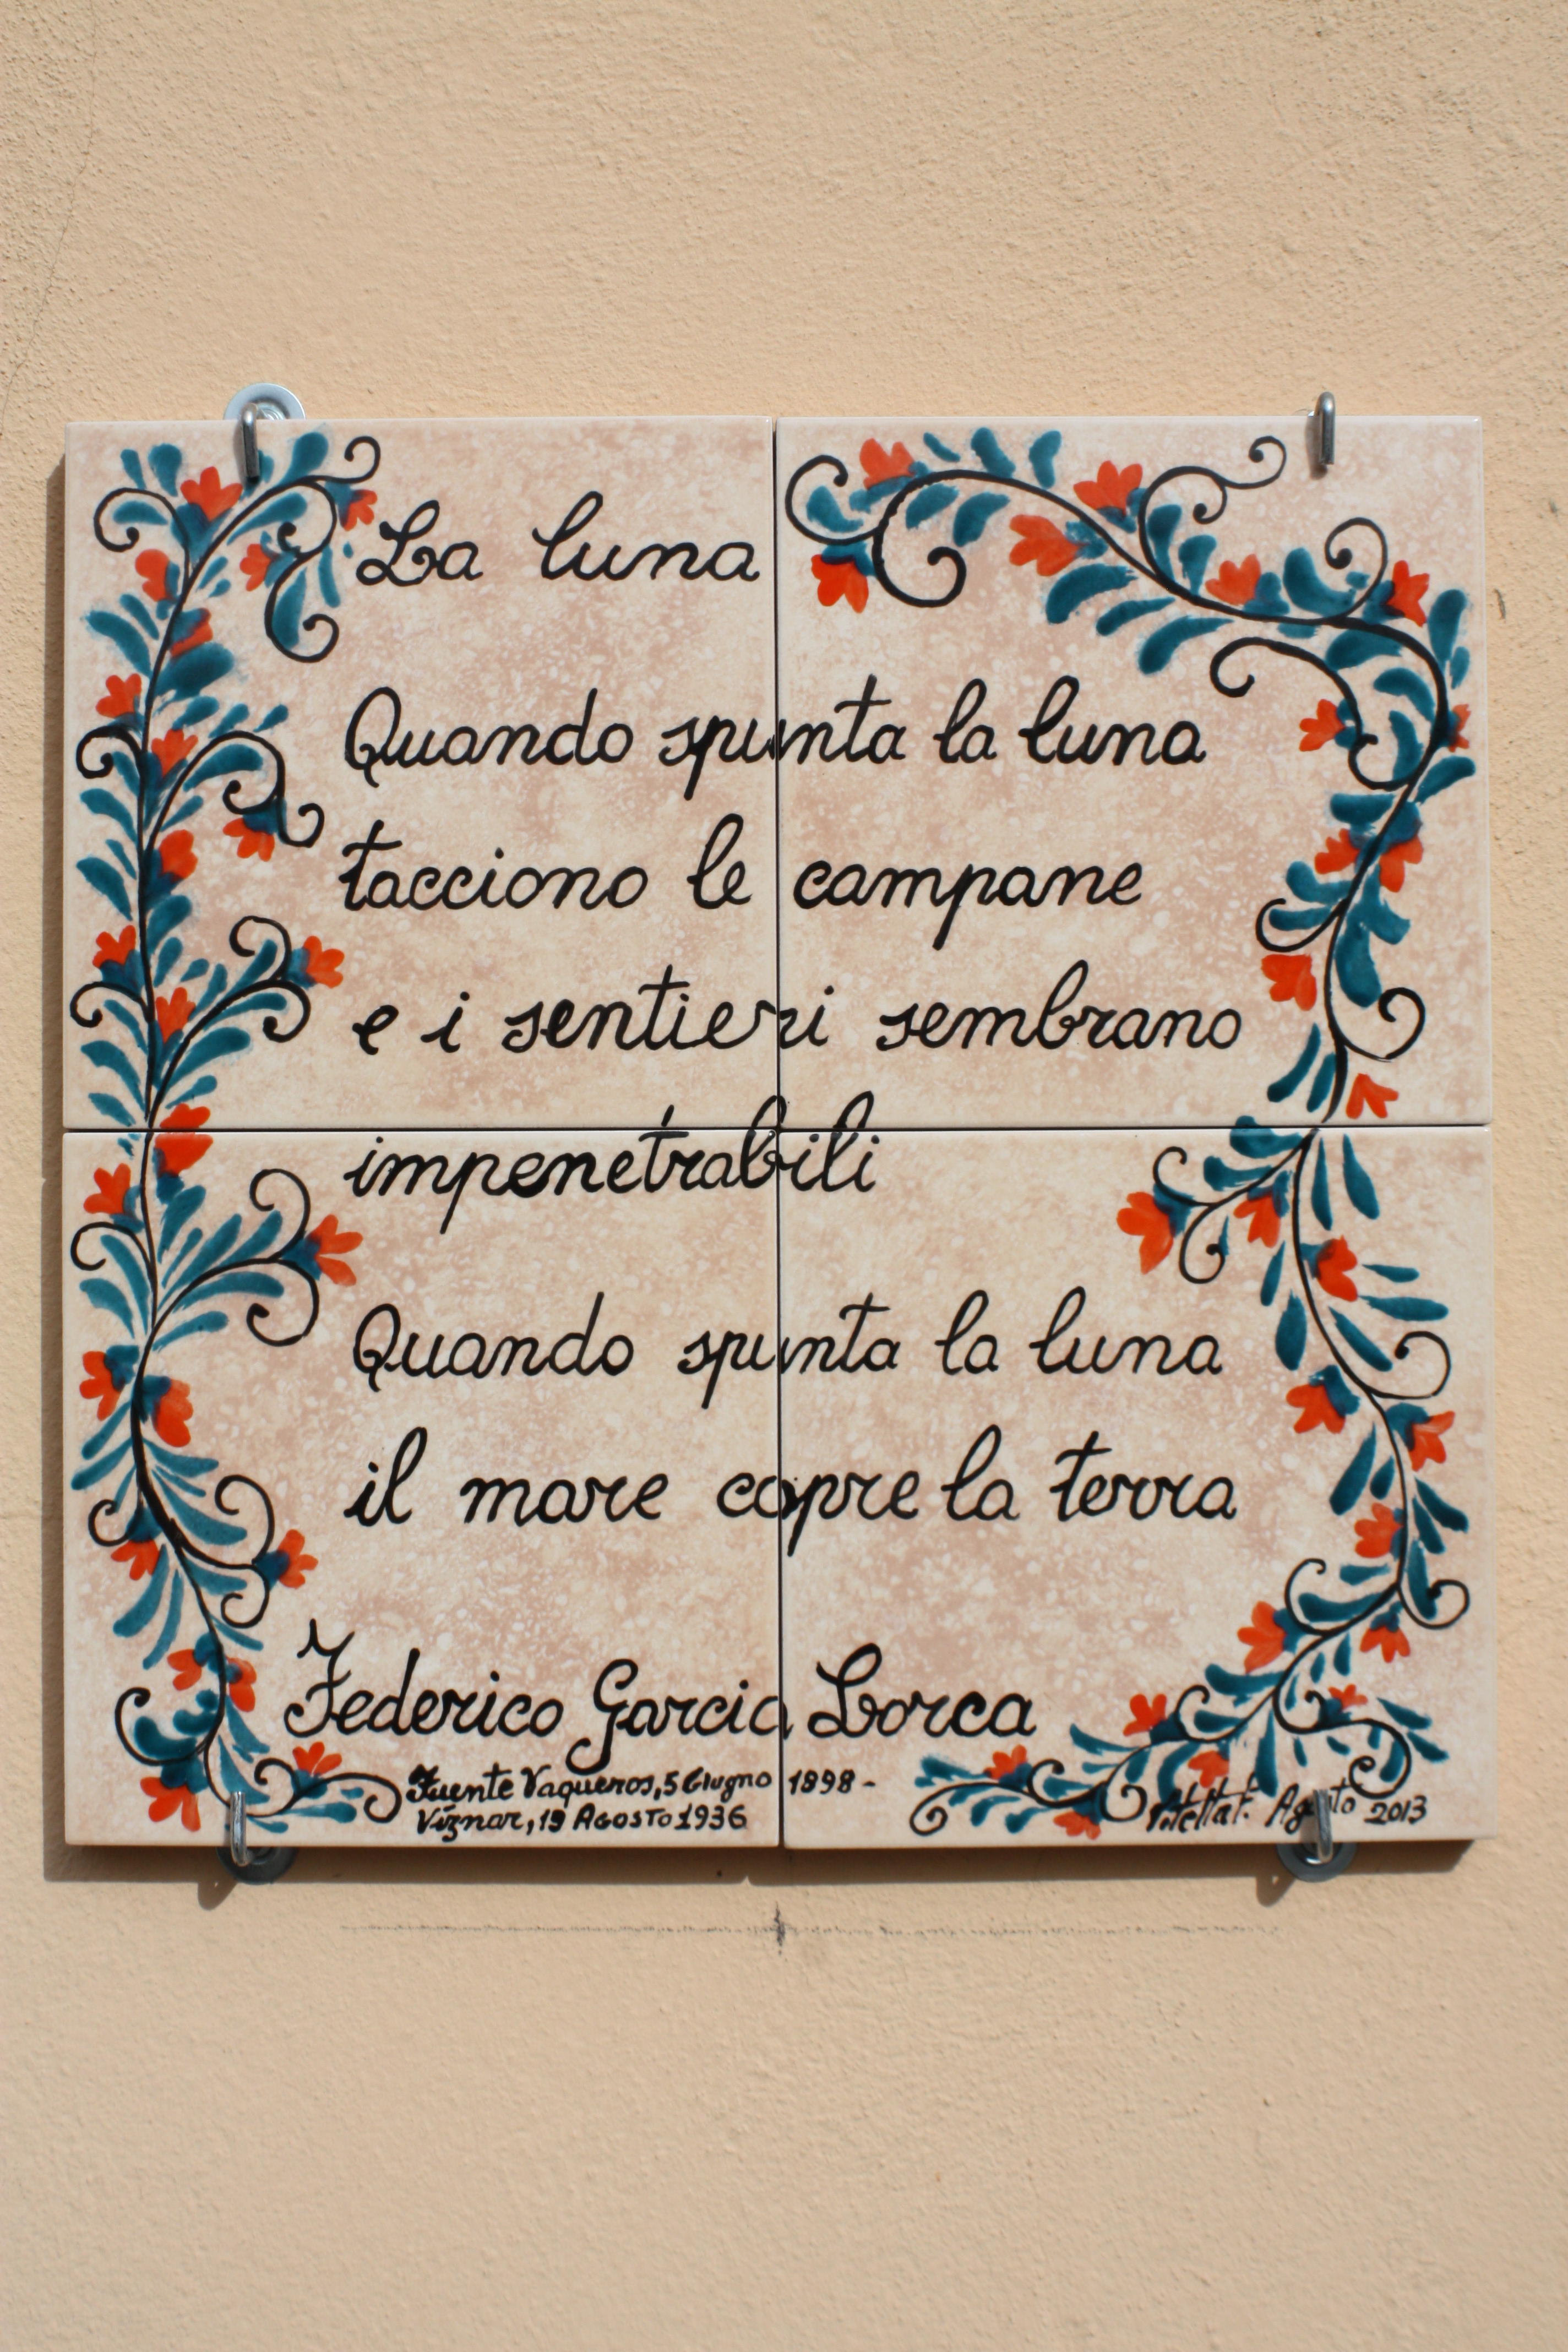 La luna
Quando spunta la luna
tacciono le campane
e i sentieri sembrano
impenetrabili
Quando spunta la luna
il mare copre la terra
Federico Garcia Lorca
Fuente Vaqueros, 5 Giugno 1898 -
Víznar, 19 Agosto 1936
Agosto 2013